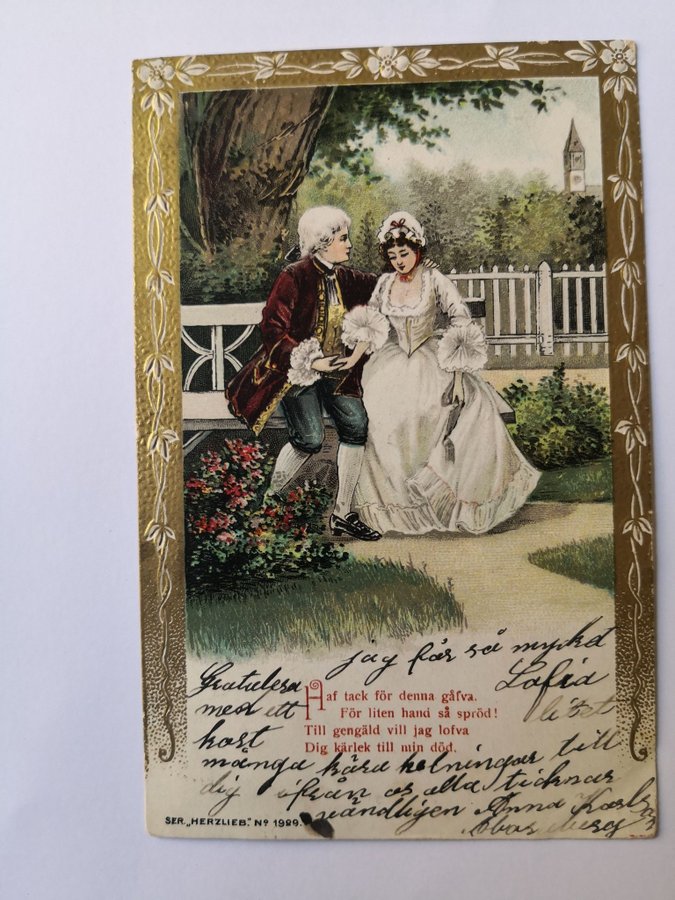 jag får så mycke
Gratulera Lofia
med ett litet
kort
Haf tack för denna gåfva.
För liten hand så spröd!
Till gengäld vill jag lofva
Dig kärlek till min död.
många kära helningar till
dig ifrån os alla
vändligen Anna
SER. „HERZLIEB.” Nº 1989.